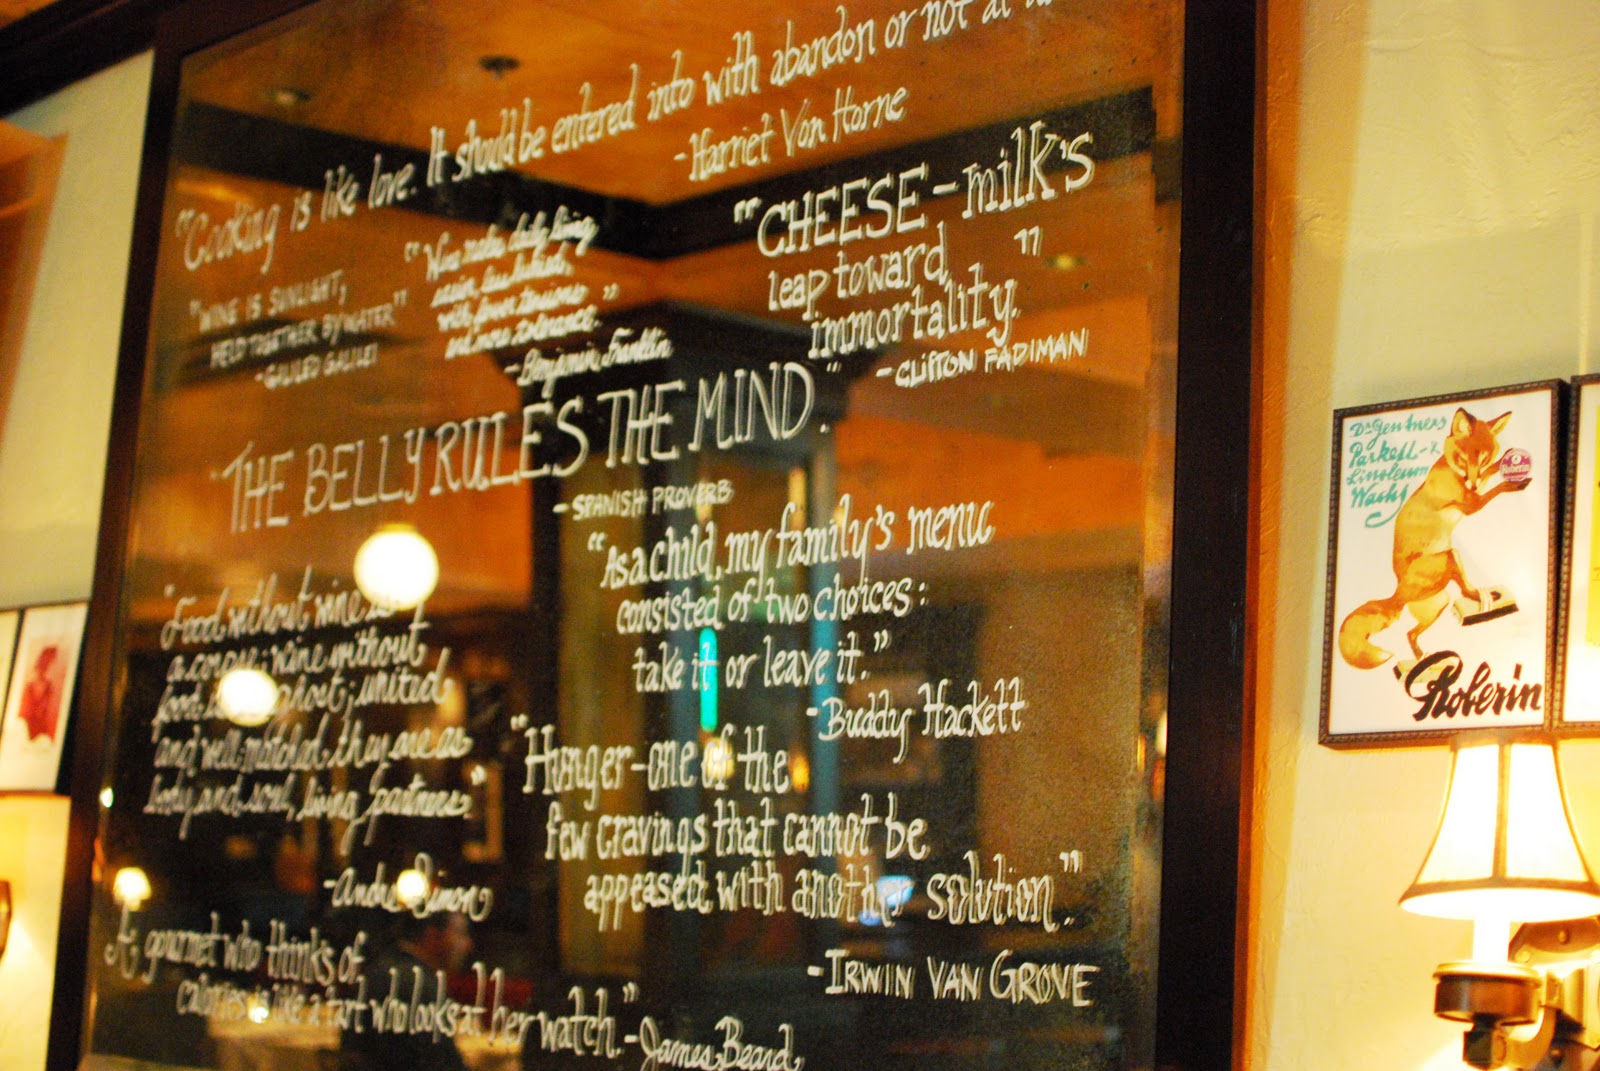 "Cooking is like love. It should be entered into with abandon or not at
-Harriet Von Horne
"WINE IS SUNLIGHT,
HELD TOGETHER BY WATER"
-GALILEO GALILEI
"Wine makes daily living
easier, less hurried,
with fewer tensions
and more tolerance."
-Benjamin Franklin
"CHEESE-milk's
leap toward
immortality."
-CLIFTON FADIMAN
"THE BELLY RULES THE MIND."
-SPANISH PROVERB
"As a child, my family's menu
consisted of two choices:
take it or leave it."
-Buddy Hackett
"Food without wine is a
a corpse; wine without
food is a ghost; united
and well-matched they are as
body and soul, living partners."
-Andre Simon
"Hunger-one of the
few cravings that cannot be
appeased with another solution."
-IRWIN VAN GROVE
A gourmet who thinks of
calories is like a tart who looks at her watch."-James Beard
Dr. Gentners
Parkett- &
Linoleum
Wachs
Roberin
Roberin